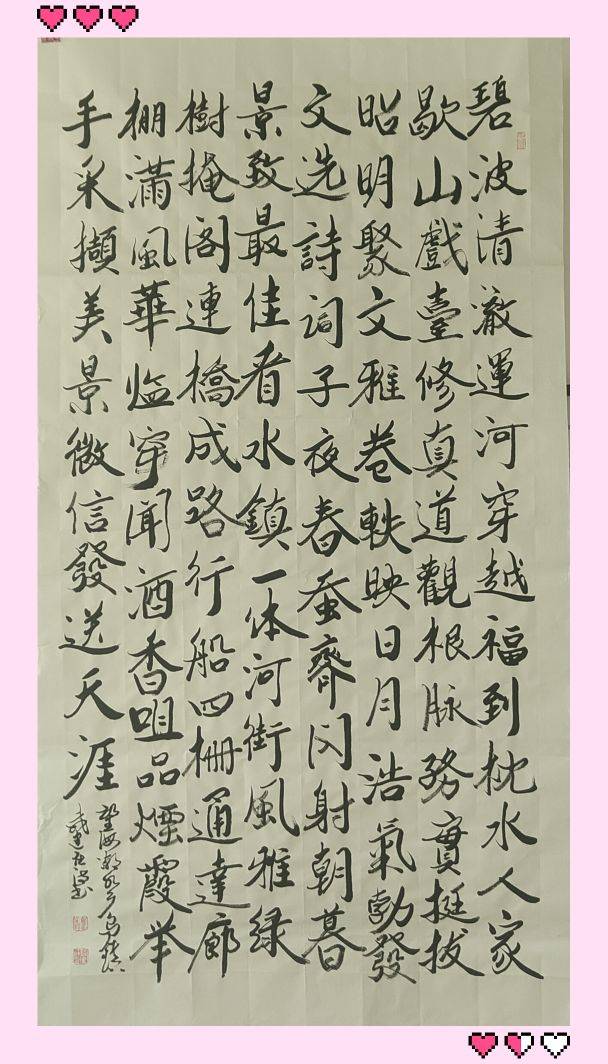 碧波清澈運河穿越福到枕水人家
歇山戲臺修真道觀根脉務實挺拔
昭明聚文雅卷軼映日月浩氣勃發
文选詩词子夜春蚕齊闪射朝暮
景致最佳看水鎮一体河街風雅绿
樹掩阁連橋成路行船四栅通達廊
棚滿風華临窗闻酒香咀品煙霞举
手采擷美景微信發送天涯
望海潮